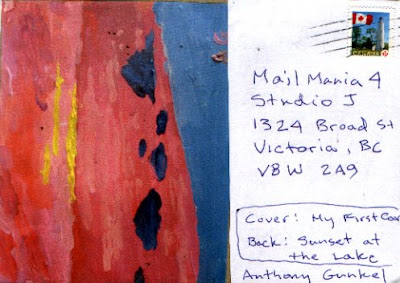 Mail Mania 4
Studio J
1324 Broad St
Victoria, BC
V8W 2A9
Cover: My First
Back: Sunset at
the Lake
Anthony Gunkel